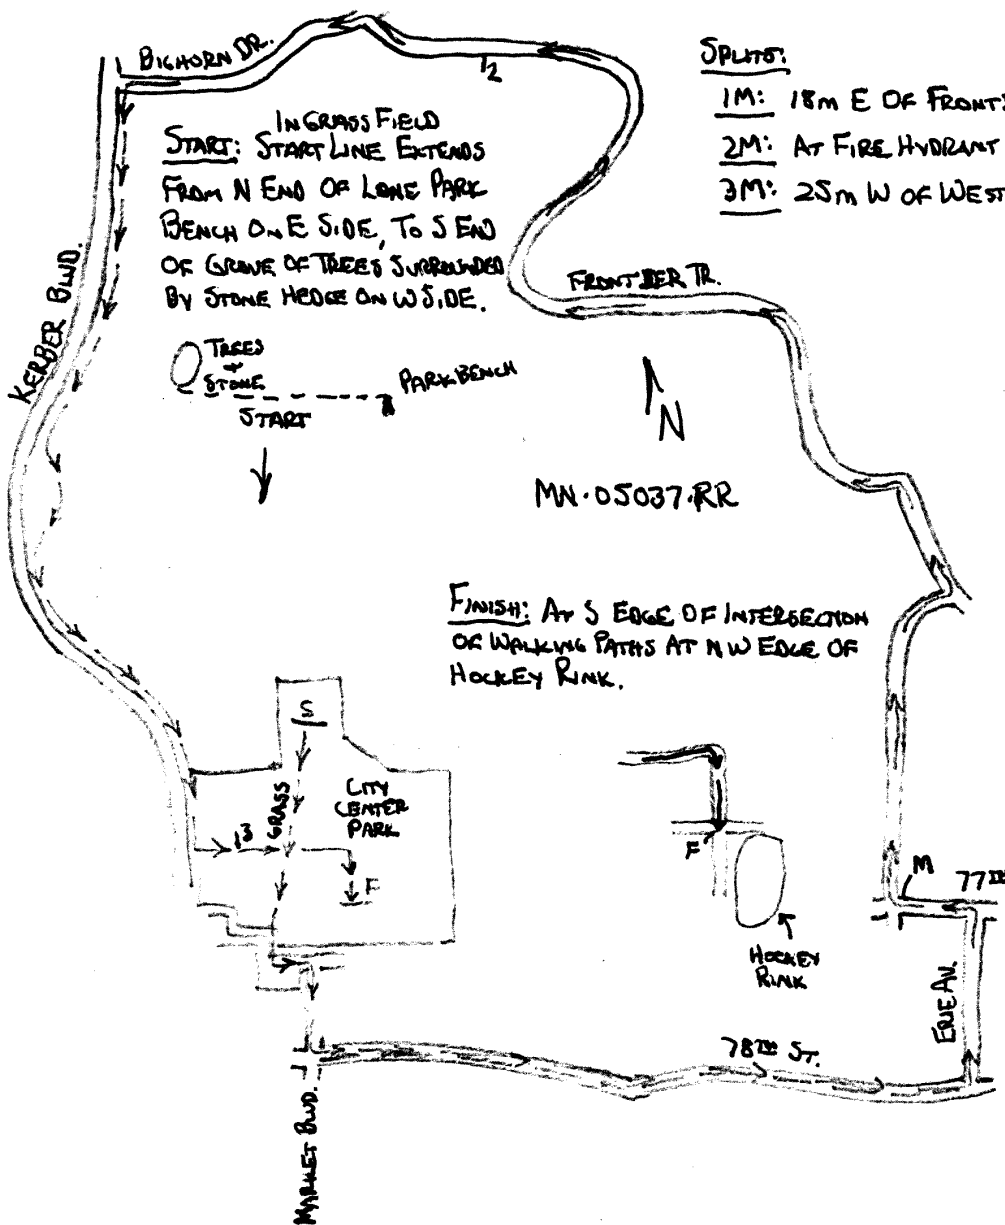 BIGHORN DR.
2
SPLITS:
1M: 18m E OF FRONT
2M: AT FIRE HYDRANT
3M: 25m W OF WEST
IN GRASS FIELD
START: START LINE EXTENDS
FROM N END OF LONE PARK
BENCH ON E SIDE, TO S END
OF GROVE OF TREES SURROUNDED
BY STONE HEDGE ON W SIDE.
KERBER BLVD.
FRONTIER TR.
TREES
+
STONE
PARK BENCH
START
N
MN·05037·RR
FINISH: AT S EDGE OF INTERSECTION
OF WALKING PATHS AT NW EDGE OF
HOCKEY RINK.
S
GRASS
CITY
CENTER
PARK
3
F
F
HOCKEY
RINK
M
77TH
ERIE AV.
78TH ST.
MARKET BLVD.